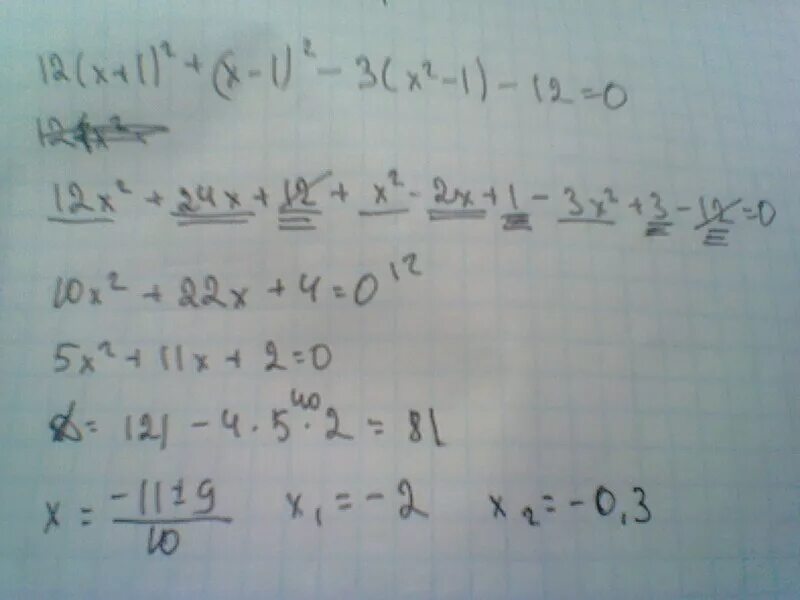 12(x+1)² + (x-1)² - 3(x²-1) - 12 = 0
12x² + 24x + 12 + x² - 2x + 1 - 3x² + 3 - 12 = 0
10x² + 22x + 4 = 0 |2
5x² + 11x + 2 = 0
D = 121 - 4 · 5 · 2 = 81
40
x = (-11 ± 9)/10 x₁ = -2 x₂ = -0,3